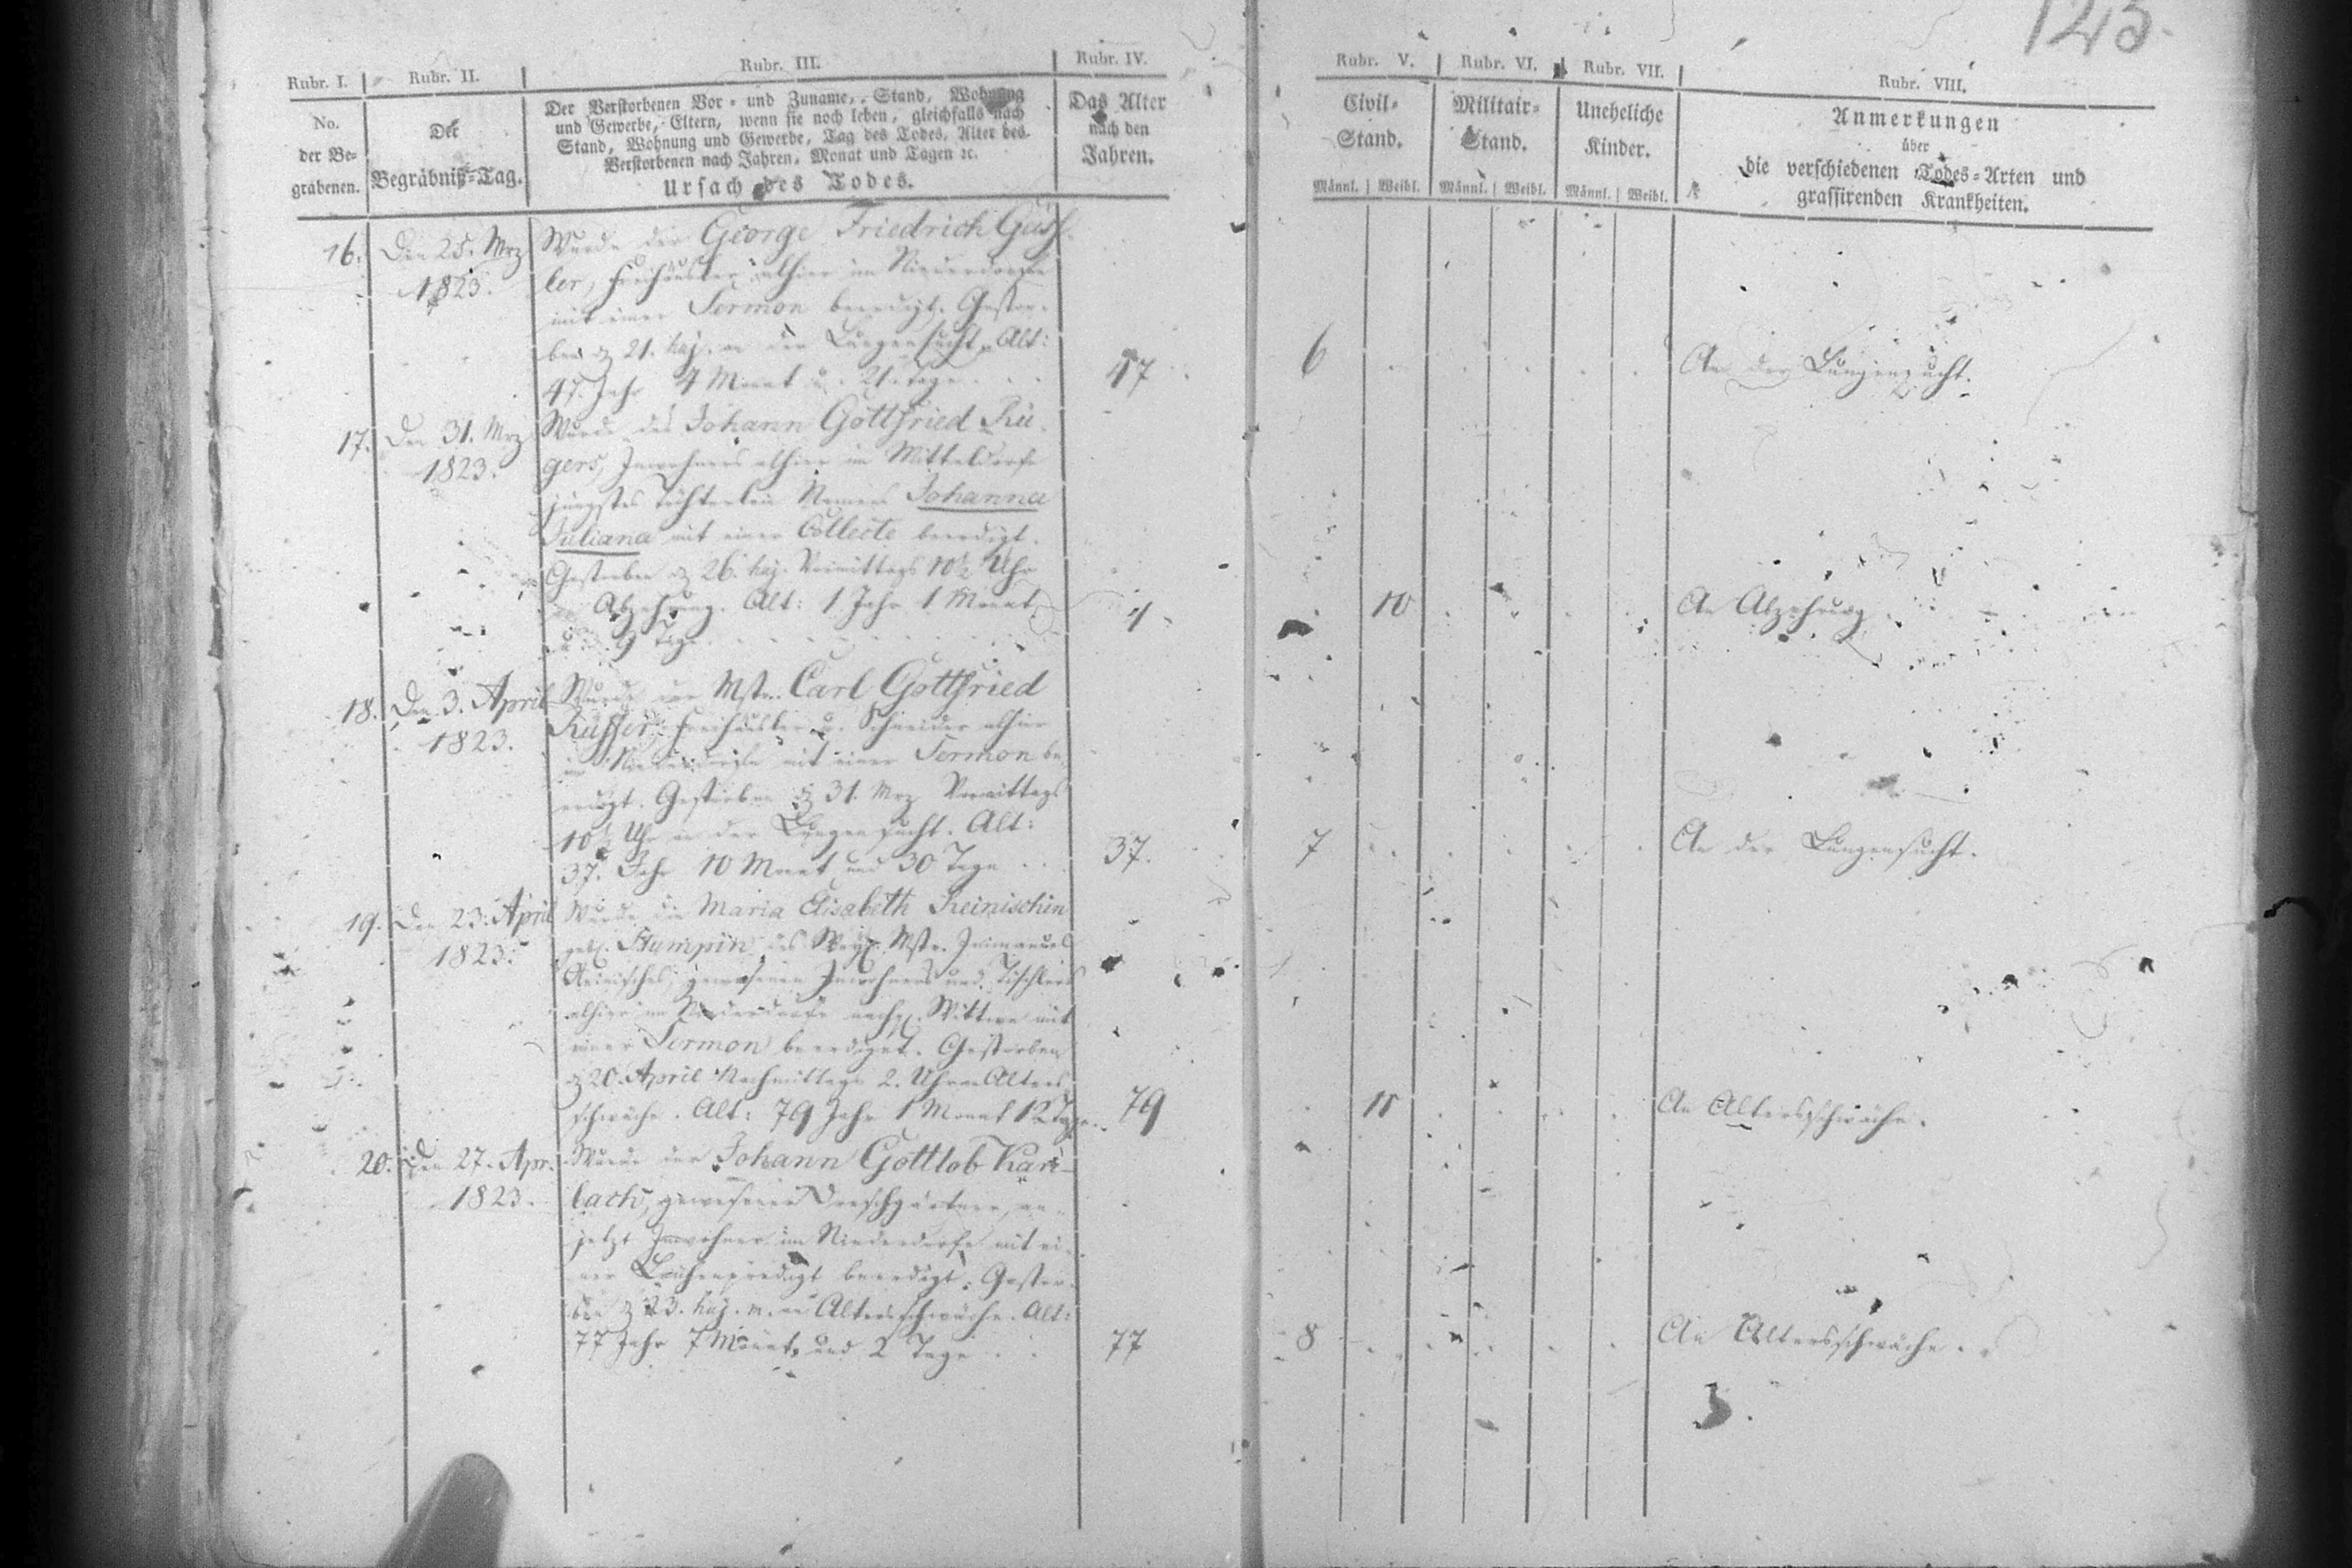 123.
Rubr. I. Rubr. II. Rubr. III. Rubr. IV. Rubr. V. Rubr. VI. Rubr. VII. Rubr. VIII.
No.
der Be-
grabenen.
Der
Begräbniß-Tag.
Der Verstorbenen Vor- und Zuname, Stand, Wohnung
und Gewerbe, Eltern, wenn sie noch leben, gleichfalls nach
Stand, Wohnung und Gewerbe, Tag des Todes, Alter des
Verstorbenen nach Jahren, Monat und Tagen ꝛc.
Ursach des Todes.
Das Alter
nach den
Jahren.
Civil-
Stand.
Männl. Weibl.
Militair-
Stand.
Männl. Weibl.
Uneheliche
Kinder.
Männl. Weibl.
Anmerkungen
über
die verschiedenen Todes-Arten und
grassirenden Krankheiten.
16. Den 25. Mrz
1823.
Wurde der George Friedrich
ler, Freihäusler alhier im Niederdorfe
mit einer Sermon beerdigt. Gestor-
ben d 21. huj. an der Lungensucht. Alt:
47 Jahr 4 Monat u. 21. Tage
47
6
An der Lungensucht.
17. Den 31. Mrz
1823.
Wurde des Johann Gottfried Rü-
gers, Inwohners alhier im Mitteldorfe
jüngstes Töchterlein Namens Johanna
Juliana mit einer Collecte beerdigt.
Gestorben d 26. huj. Vormittags 10½ Uhr
an Abzehrung. Alt: 1 Jahr 1 Monat
u. 9 Tage
1
10
An Abzehrung
18. Den 3. April
1823.
Wurde der Mstr. Carl Gottfried
Freihäusler u. Schneider alhier
im Niederdorfe mit einer Sermon be-
erdigt. Gestorben d 31. Mrz Vormittags
10½ Uhr an der Lungensucht. Alt:
37. Jahr 10 Monat und 30 Tage
37.
7
An der Lungensucht.
19. Den 23. April
1823.
Wurde die Maria Elisabeth Reinischin
geb. Stumpin, des Mstr. Immanuel
Reinisches, gewesenen Inwohners und Tischlers
alhier im Niederdorfe Wittwe mit
einer Sermon beerdiget. Gestorben
d 20. April Nachmittags 2. Uhr an Alters-
schwäche. Alt: 79 Jahr 1 Monat 12 Tage
79
11
An Altersschwäche.
20. Den 27. Apr.
1823.
Wurde der Johann Gottlob
bach, gewesener Dreschgärtner, an-
jetzt Inwohner im Niederdorfe mit ei-
ner Leichenpredigt beerdigt. Gestor-
ben d 23. huj. m. an Altersschwäche. Alt:
77 Jahr 7 Monat und 2 Tage
77
8
An Altersschwäche.